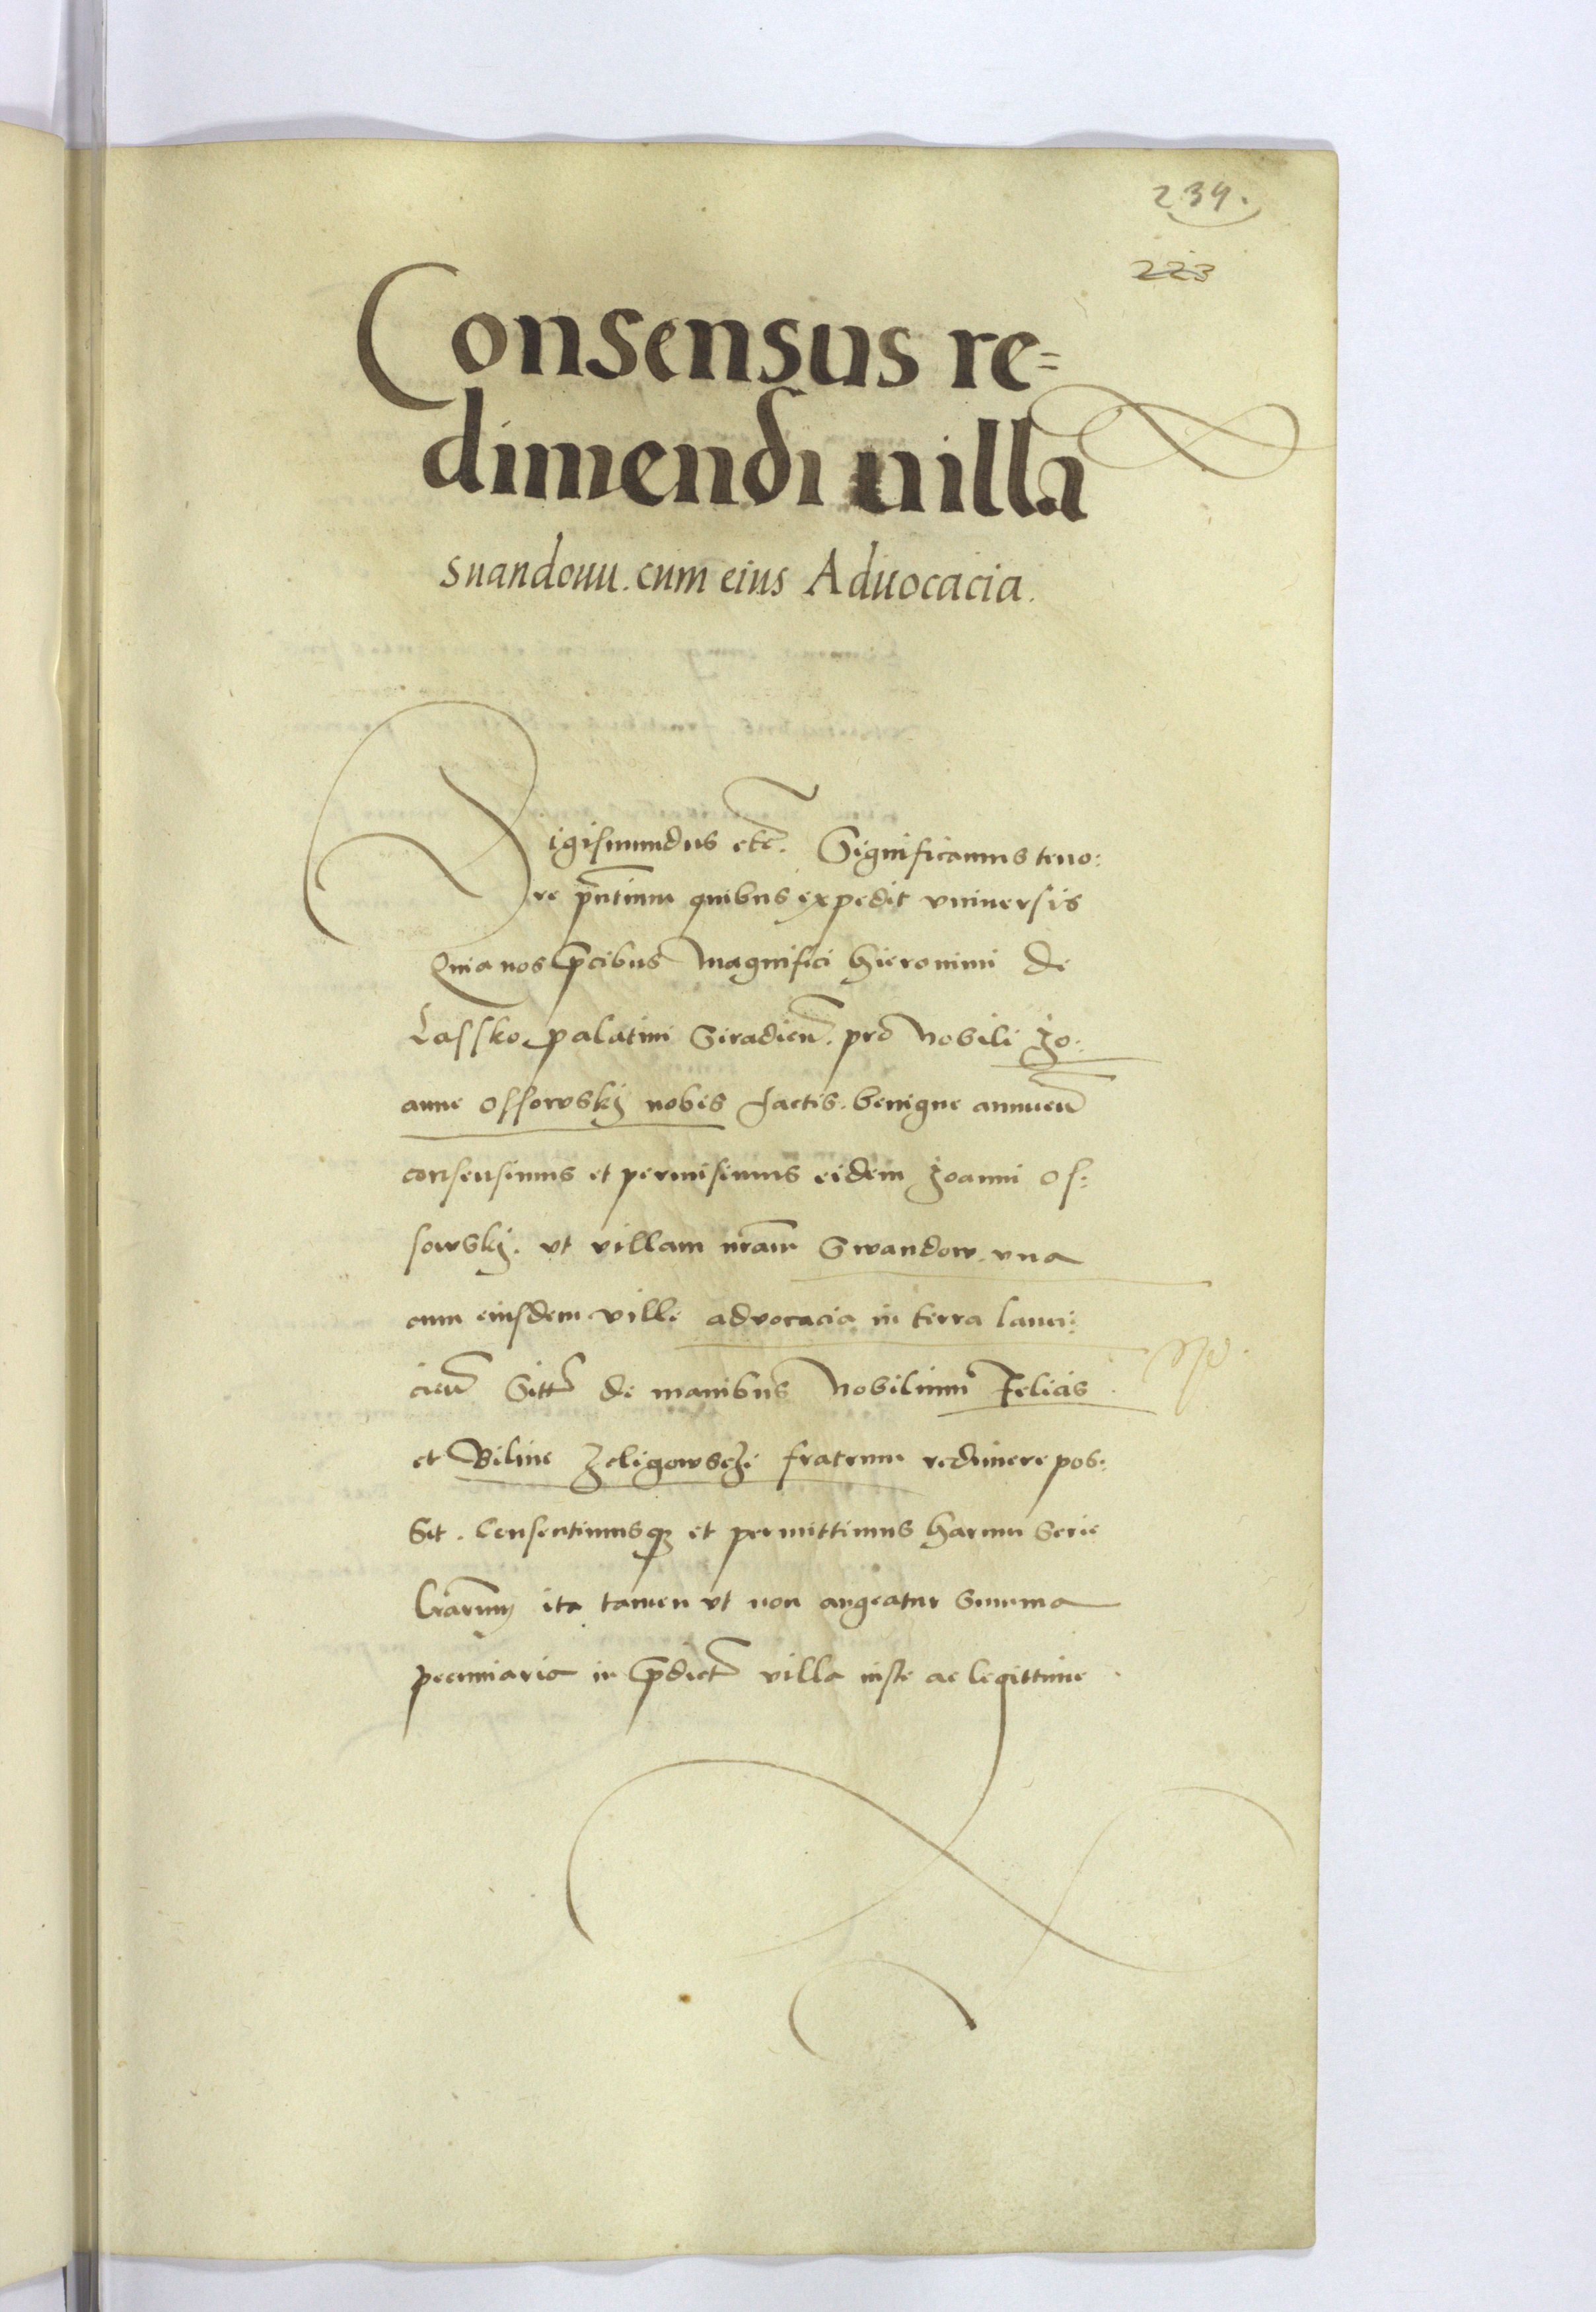 239.
223
Consensus re=
dimendi uilla
suandouu. cum eius Aduocacia.
Sigismundus etc. Significamus teno:
re pntium quibus expedit vniuersis
Quia nos pcibus Magnifici Hieronimi de
Lassko palatini Siradien. pro Nobili Jo:
anne Ossowskj nobis factis. benigne annuen
consensimus et permisimus eidem Joanni Os:
sowskj. vt villam nram Swandow. vna
cum eiusdem ville advocacia in terra lanci:
cien Sitt de manibus Nobilium Felicis
et Biline Zeligowsczi fratrum redimere pos:
Sit. Consentimusq3 et permittimus harum Serie
lrarum, ita tamen vt non augeatur Summa
pecuniaria in pdict villa iuste ac legittime